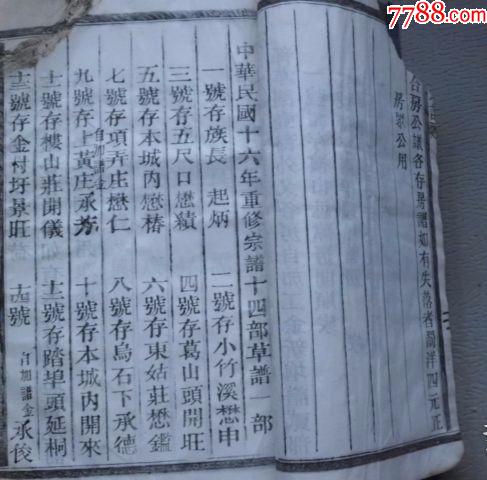 7788.com
合房公議各存房譜如有失落者罰洋四元正
房眾公用
中華民國十六年重修宗譜十四部草譜一部
一號存族長 起炳 二號存小竹溪懋申
三號存五尺口懋績 四號存葛山頭開旺
五號存本城內懋椿 六號存東姑莊懋鑑
七號存項弄庄懋仁 八號存烏石下承德
九號存上黃庄承芳 自加譜金 十號存本城內開來
十一號存樓山莊開儀 十二號存踏埠頭延桐
十三號存金村圩景旺 十四號 自加譜金 承俊